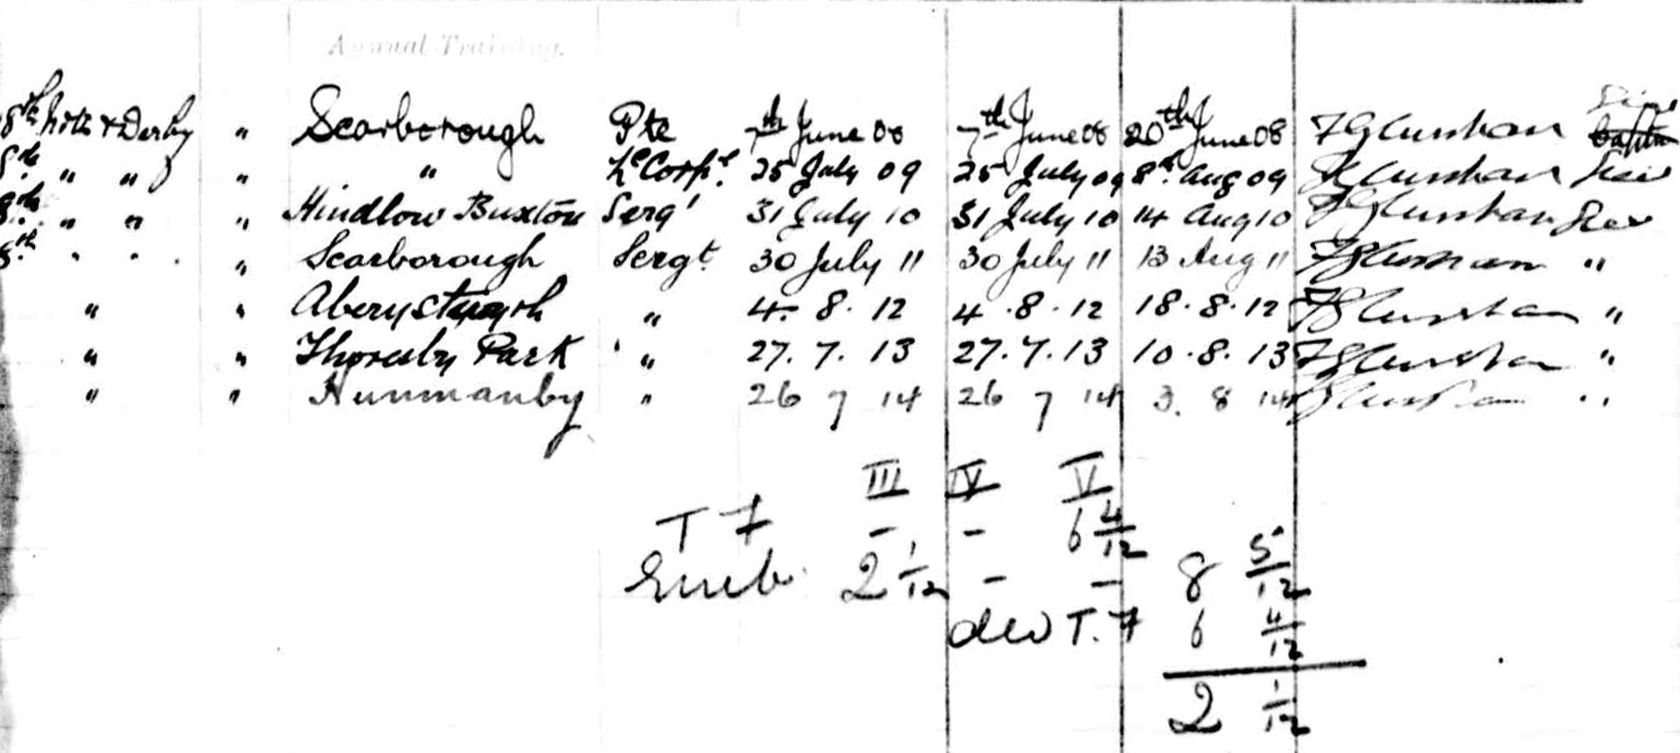 Annual Training.
8th Notts & Derby " Scarborough Pte 7th June 08 7th June 08 20th June 08
8th " " " " Le Corpl. 25 July 09 25 July 09 8th Aug 09
8th " " " Hindlow Buxton Sergt 31 July 10 31 July 10 14 Aug 10
8th " " " Scarborough Sergt. 30 July 11 30 July 11 13 Aug 11 "
" " Aberystwyth " 4. 8. 12 4. 8. 12 18. 8. 12 "
" " Thoresby Park " 27. 7. 13 27. 7. 13 10. 8. 13 "
" " Hunmanby " 26 7 14 26 7 14 3. 8 14 "
III IV V
T F - - 6 4/12
Emb. 2 1/12 - - 8 5/12
T. F 6 4/12
2 1/12